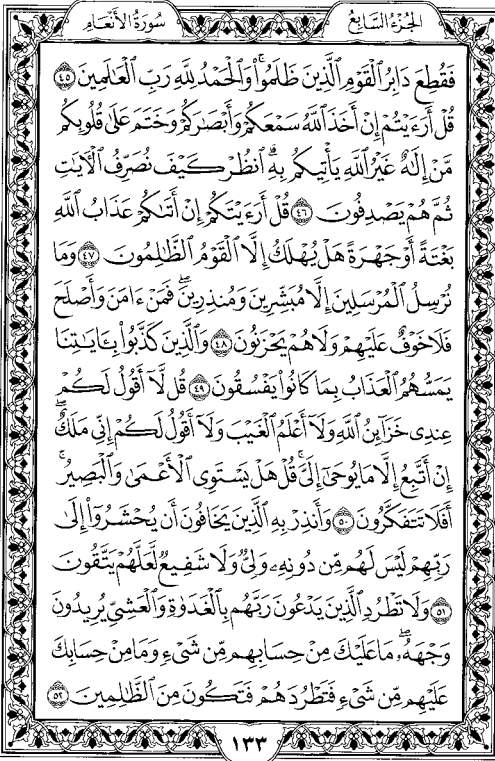 الجزء السابع
سورة الأنعام
فَقُطِعَ دَابِرُ ٱلْقَوْمِ ٱلَّذِينَ ظَلَمُوا۟ ۚ وَٱلْحَمْدُ لِلَّهِ رَبِّ ٱلْعَٰلَمِينَ ٤٥
قُلْ أَرَءَيْتُمْ إِنْ أَخَذَ ٱللَّهُ سَمْعَكُمْ وَأَبْصَٰرَكُمْ وَخَتَمَ عَلَىٰ قُلُوبِكُم
مَّنْ إِلَٰهٌ غَيْرُ ٱللَّهِ يَأْتِيكُم بِهِ ۗ ٱنظُرْ كَيْفَ نُصَرِّفُ ٱلْءَايَٰتِ
ثُمَّ هُمْ يَصْدِفُونَ ٤٦ قُلْ أَرَءَيْتَكُمْ إِنْ أَتَىٰكُمْ عَذَابُ ٱللَّهِ
بَغْتَةً أَوْ جَهْرَةً هَلْ يُهْلَكُ إِلَّا ٱلْقَوْمُ ٱلظَّٰلِمُونَ ٤٧ وَمَا
نُرْسِلُ ٱلْمُرْسَلِينَ إِلَّا مُبَشِّرِينَ وَمُنذِرِينَ ۖ فَمَنْ ءَامَنَ وَأَصْلَحَ
فَلَا خَوْفٌ عَلَيْهِمْ وَلَا هُمْ يَحْزَنُونَ ٤٨ وَٱلَّذِينَ كَذَّبُوا۟ بِـَٔايَٰتِنَا
يَمَسُّهُمُ ٱلْعَذَابُ بِمَا كَانُوا۟ يَفْسُقُونَ ٤٩ قُل لَّآ أَقُولُ لَكُمْ
عِندِى خَزَآئِنُ ٱللَّهِ وَلَآ أَعْلَمُ ٱلْغَيْبَ وَلَآ أَقُولُ لَكُمْ إِنِّى مَلَكٌ ۖ
إِنْ أَتَّبِعُ إِلَّا مَا يُوحَىٰٓ إِلَىَّ ۚ قُلْ هَلْ يَسْتَوِى ٱلْأَعْمَىٰ وَٱلْبَصِيرُ ۚ
أَفَلَا تَتَفَكَّرُونَ ٥٠ وَأَنذِرْ بِهِ ٱلَّذِينَ يَخَافُونَ أَن يُحْشَرُوٓا۟ إِلَىٰ
رَبِّهِمْ ۙ لَيْسَ لَهُم مِّن دُونِهِۦ وَلِىٌّ وَلَا شَفِيعٌ لَّعَلَّهُمْ يَتَّقُونَ
٥١ وَلَا تَطْرُدِ ٱلَّذِينَ يَدْعُونَ رَبَّهُم بِٱلْغَدَوٰةِ وَٱلْعَشِىِّ يُرِيدُونَ
وَجْهَهُۥ ۖ مَا عَلَيْكَ مِنْ حِسَابِهِم مِّن شَىْءٍ وَمَا مِنْ حِسَابِكَ
عَلَيْهِم مِّن شَىْءٍ فَتَطْرُدَهُمْ فَتَكُونَ مِنَ ٱلظَّٰلِمِينَ ٥٢
١٣٣